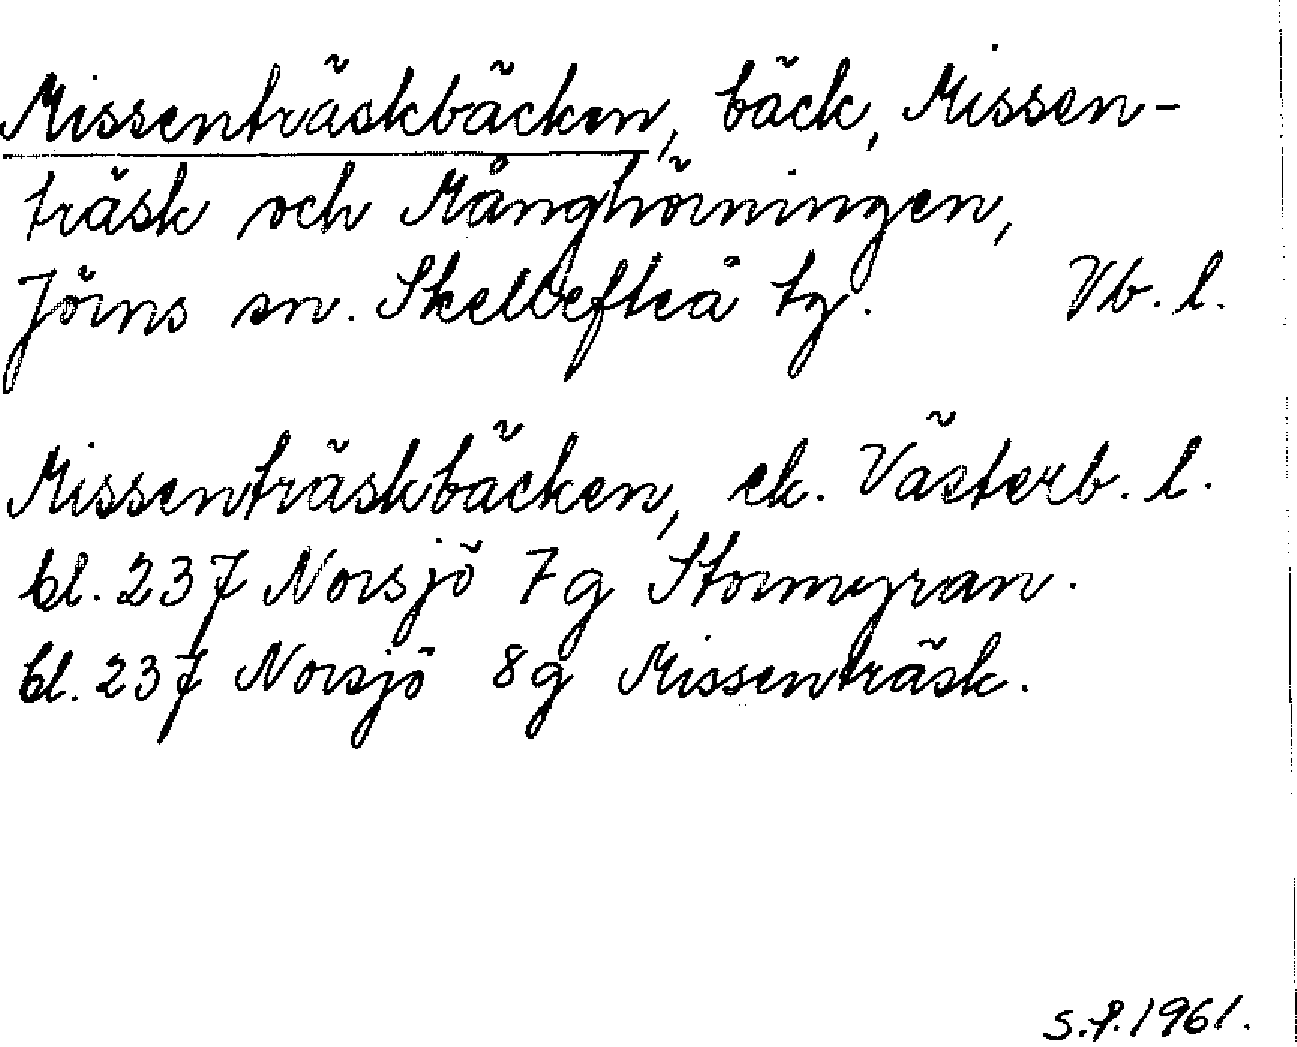 Missenträskbäcken, bäck, Missen-
träsk och Månghörningen,
Jörns sn. Skellefteå tg. Vb. l.
Missenträskbäcken, ek. Västerb. l.
bl. 237 Norsjö 7g Stormyran.
bl. 237 Norsjö 8g Missenträsk.
S.P. 1961.